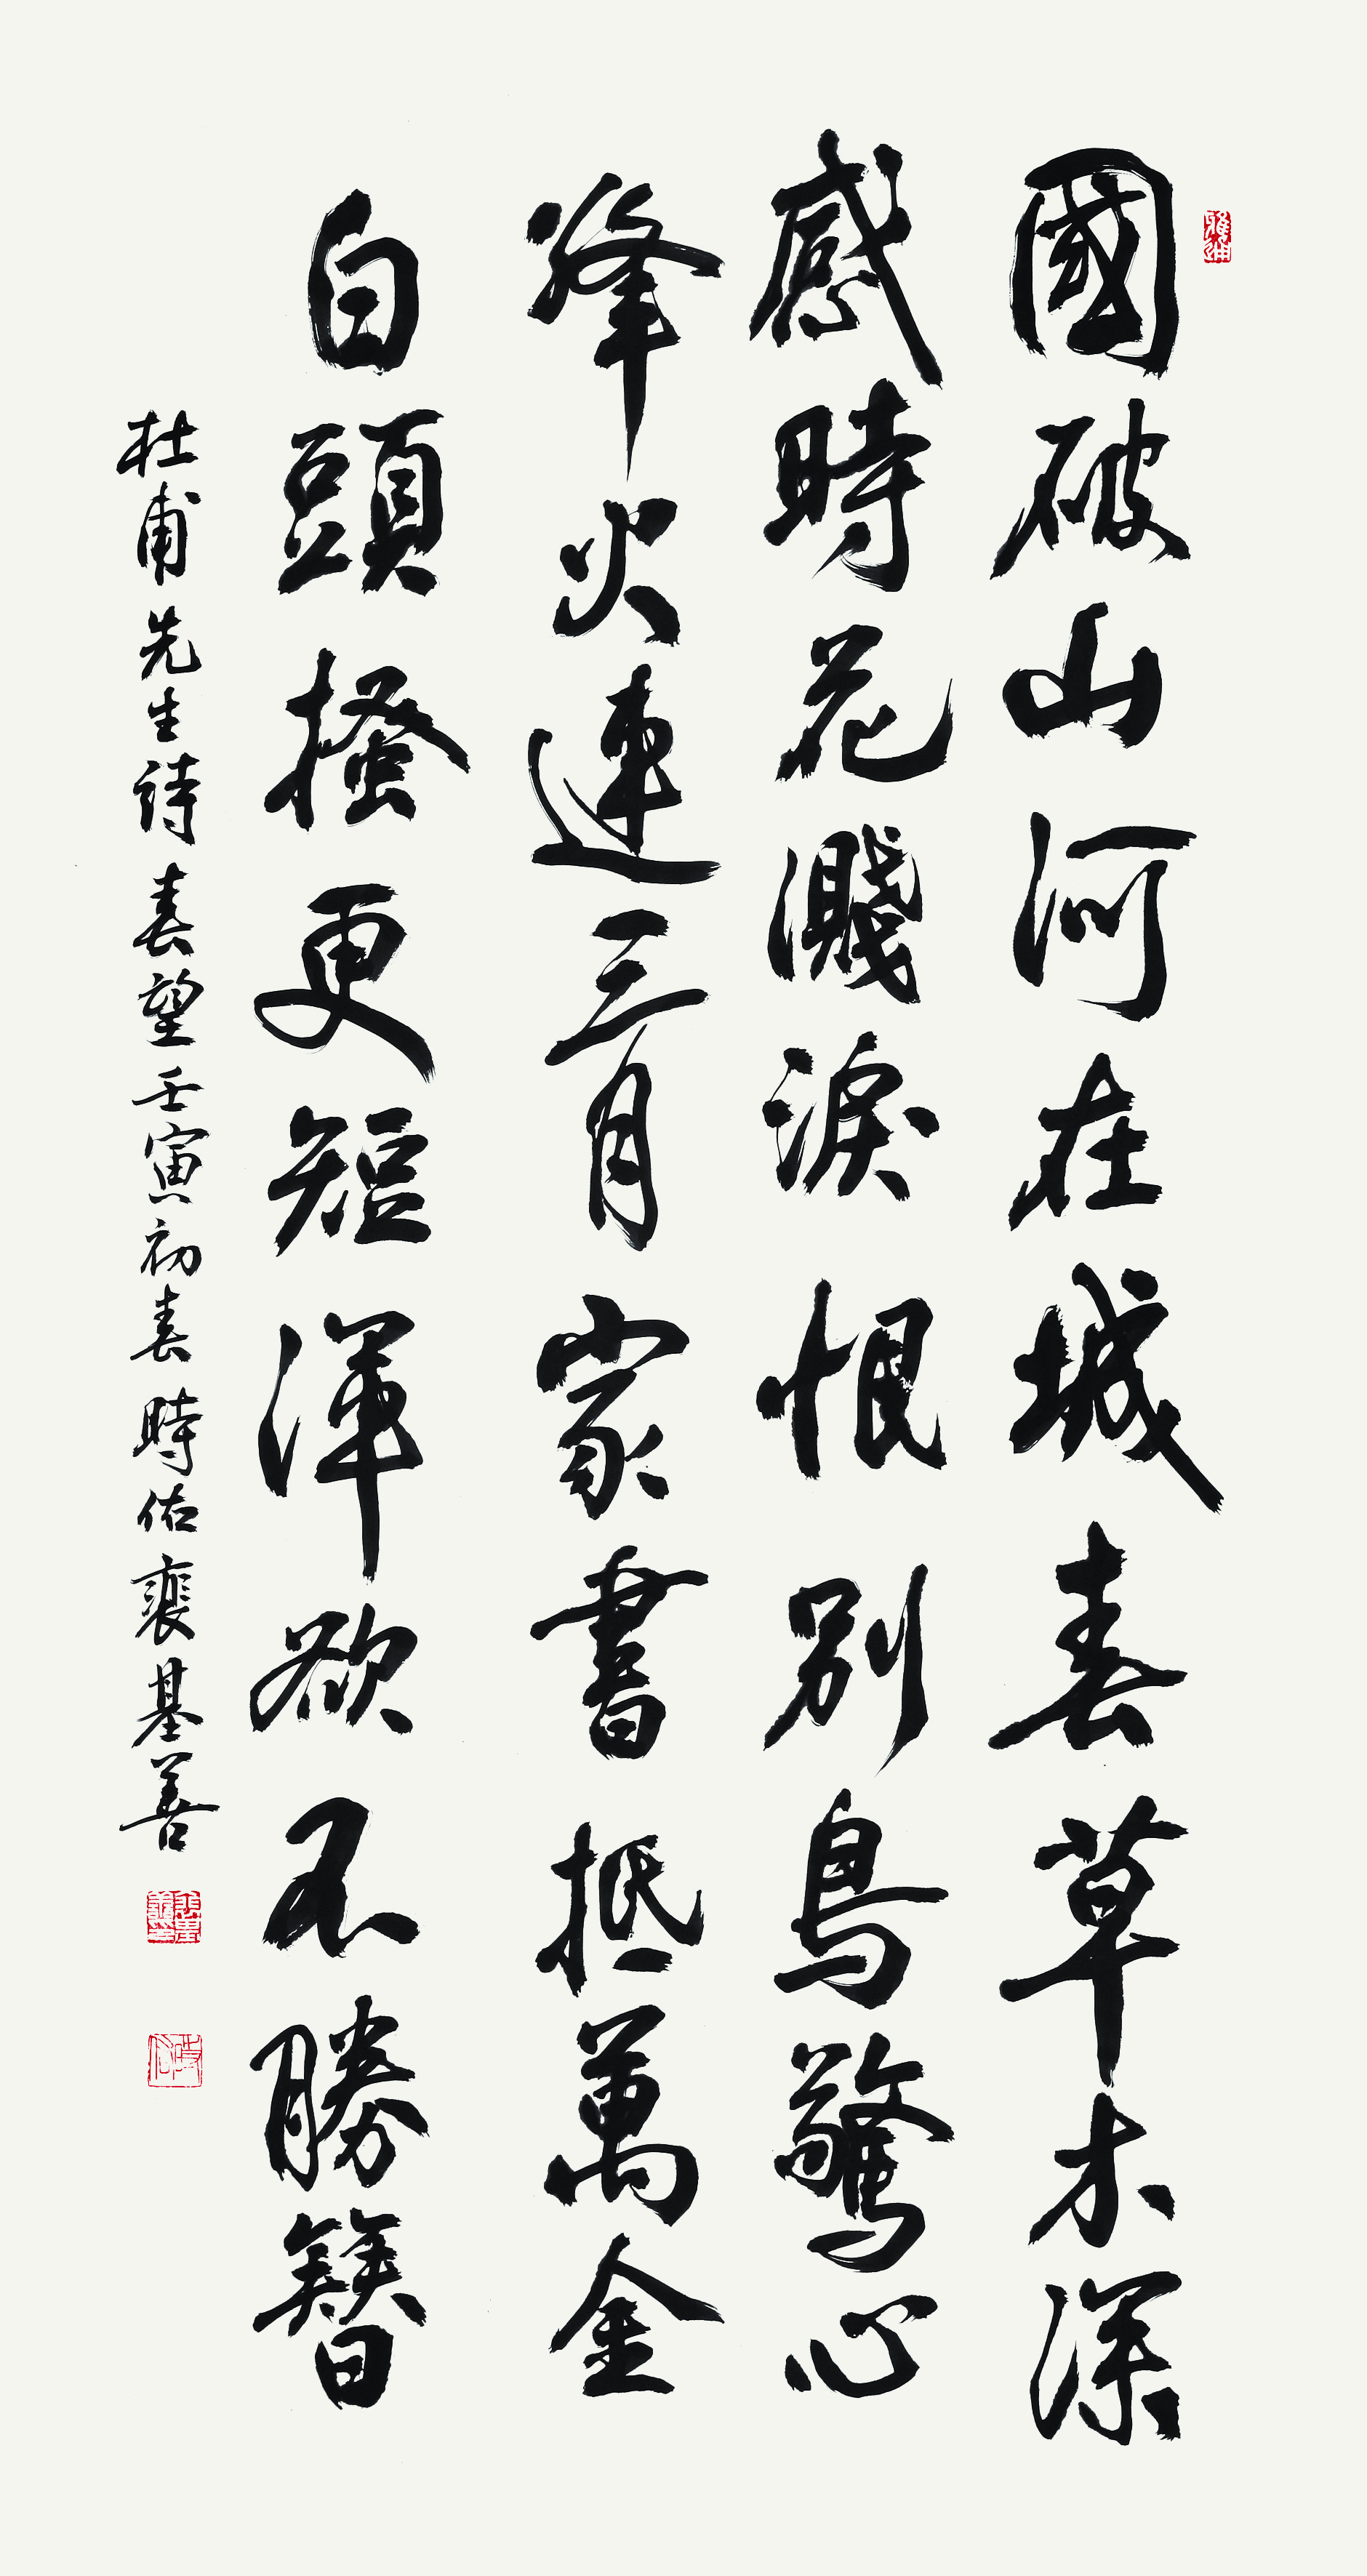 國破山河在城春草木深
感時花濺淚恨別鳥驚心
烽火連三月家書抵萬金
白頭搔更短渾欲不勝簪
杜甫先生詩春望壬寅初春時佑裵基善